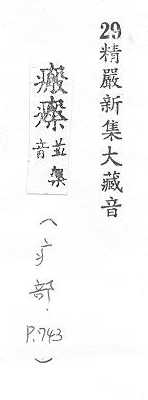 29精嚴新集大藏音
並
音
(疒部.P.743)